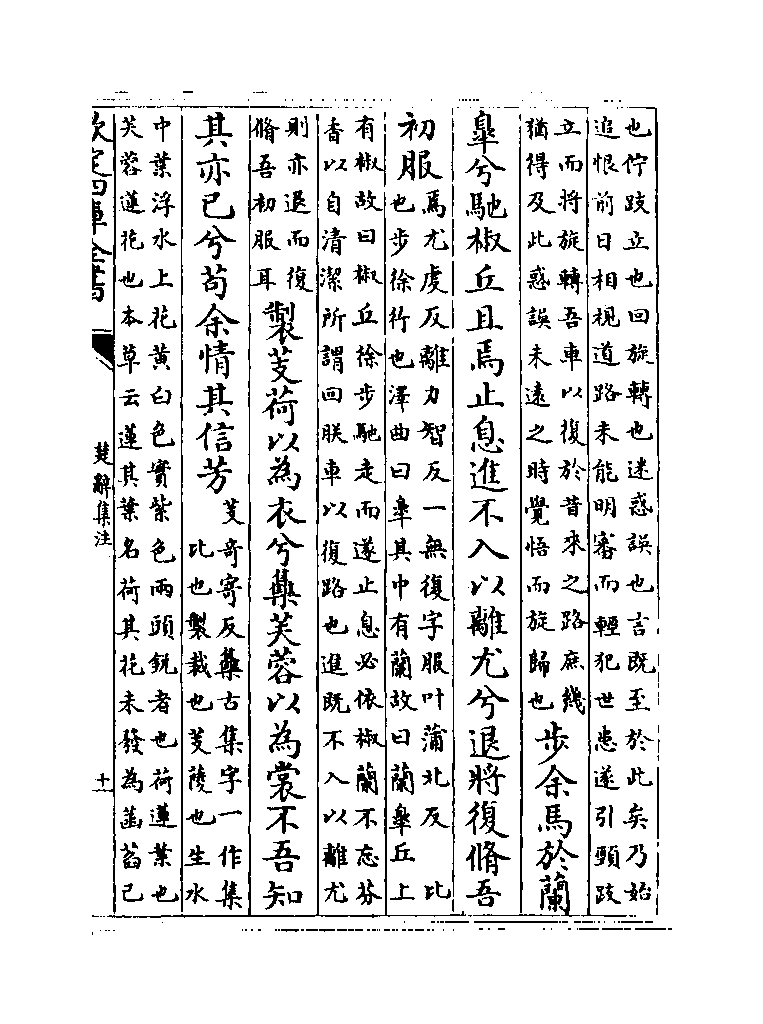 也佇跂立也回旋轉也迷惑誤也言既至於此矣乃始
追恨前日相視道路未能明審而輕犯世患遂引頸跂
立而將旋轉吾車以復於昔來之路庶幾
猶得及此惑誤未遠之時覺悟而旋歸也
步余馬於蘭
臯兮馳椒丘且焉止息進不入以離尤兮退將復脩吾
初服
焉尤䖍反離力智反一無復字服叶蒲北反 比
也步徐行也澤曲曰臯其中有蘭故曰蘭臯丘上
有椒故曰椒丘徐步馳走而遂止息必依椒蘭不忘芬
香以自清潔所謂回朕車以復路也進既不入以離尤
則亦退而復
脩吾初服耳
製芰荷以為衣兮雧芙蓉以為裳不吾知
其亦已兮苟余情其信芳
芰奇寄反雧古集字一作集
比也製裁也芰蔆也生水
中葉浮水上花黃白色實紫色兩頭銳者也荷蓮葉也
芙蓉蓮花也本草云蓮其葉名荷其花未發為菡萏已
欽定四庫全書
楚辭集注
十一